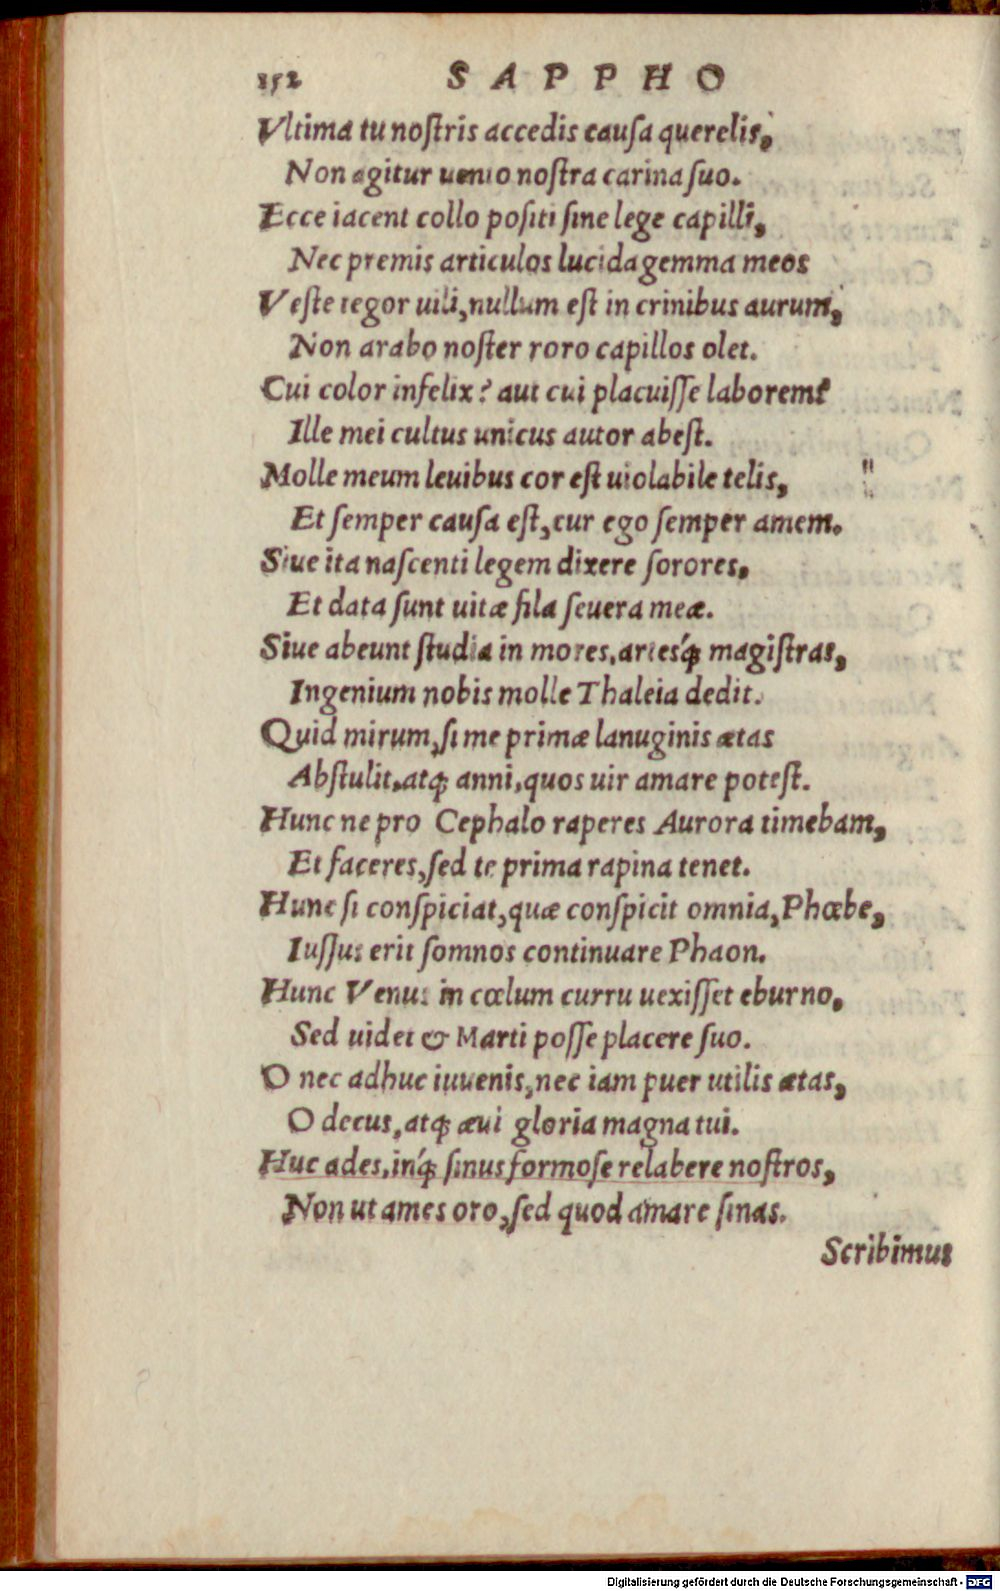 152 SAPPHO
Vltima tu noſtris accedis cauſa querelis,
Non agitur uento noſtra carina ſuo.
Ecce iacent collo poſiti ſine lege capilli,
Nec premis articulos lucida gemma meos
Veſte tegor uili, nullum eſt in crinibus aurum,
Non arabo noſter roro capillos olet.
Cui color infelix? aut cui placuiſſe laborem?
Ille mei cultus unicus autor abeſt.
Molle meum leuibus cor eſt uiolabile telis,
Et ſemper cauſa eſt, cur ego ſemper amem.
Siue ita naſcenti legem dixere ſorores,
Et data ſunt uitæ fila ſeuera meæ.
Siue abeunt ſtudia in mores, artesq́; magiſtras,
Ingenium nobis molle Thaleia dedit.
Quid mirum, ſi me primæ lanuginis ætas
Abſtulit, atq; anni, quos uir amare poteſt.
Hunc ne pro Cephalo raperes Aurora timebam,
Et faceres, ſed te prima rapina tenet.
Hunc ſi conſpiciat, quæ conſpicit omnia, Phœbe,
Iuſſus erit ſomnos continuare Phaon.
Hunc Venus in cœlum curru uexiſſet eburno,
Sed uidet & Marti poſſe placere ſuo.
O nec adhuc iuuenis, nec iam puer utilis ætas,
O decus, atq; æui gloria magna tui.
Huc ades, inq́; ſinus formoſe relabere noſtros,
Non ut ames oro, ſed quod amare ſinas.
Scribimus
Digitalisierung gefördert durch die Deutsche Forschungsgemeinschaft - DFG